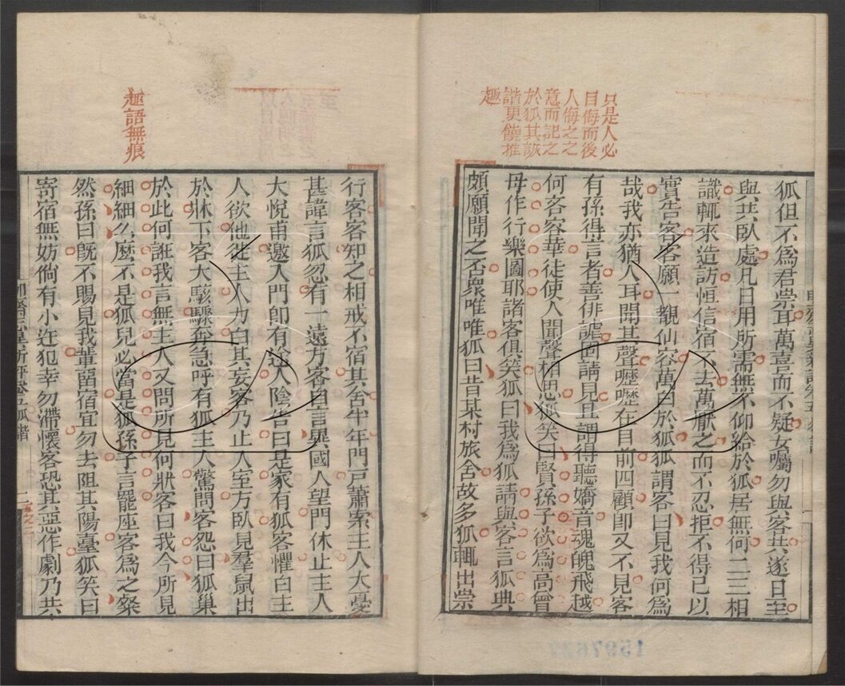 只是人必
自侮而後
人侮之之
意而記之
於狐其詼
諧更饒雅
趣
狐但不為君祟耳萬喜而不疑女囑勿與客共遂日至
與共臥處凡日用所需無不仰給於狐居無何二三相
識輒來造訪恒信宿不去萬厭之而不忍拒不得已以
實告客客願一覩仙容萬白於狐狐謂客曰見我何為
哉我亦猶人耳聞其聲嚦嚦在目前四顧即又不見客
有孫得言者善俳謔固請見且謂得聽嬌音魂魄飛越
何吝容華徒使人聞聲相思狐笑曰賢孫子欲為高曾
母作行樂圖耶諸客俱笑狐曰我為狐請與客言狐典
頗願聞之否眾唯唯狐曰昔某村旅舍故多狐輒出祟
趣語無痕
行客客知之相戒不宿其舍半年門戶蕭索主人大憂
甚諱言狐忽有一遠方客自言異國人望門休止主人
大悅甫邀入門即有途人陰告曰是家有狐客懼白主
人欲他徙主人力白其妄客乃止入室方臥見羣鼠出
於牀下客大駭驟奔急呼有狐主人驚問客怨曰狐巢
於此何誑我言無主人又問所見何狀客曰我今所見
細細么麽不是狐兒必當是狐孫子言罷座客為之粲
然孫曰既不賜見我輩留宿宜勿去阻其陽臺狐笑曰
寄宿無妨倘有小迕犯幸勿滯懷客恐其惡作劇乃共
1597637